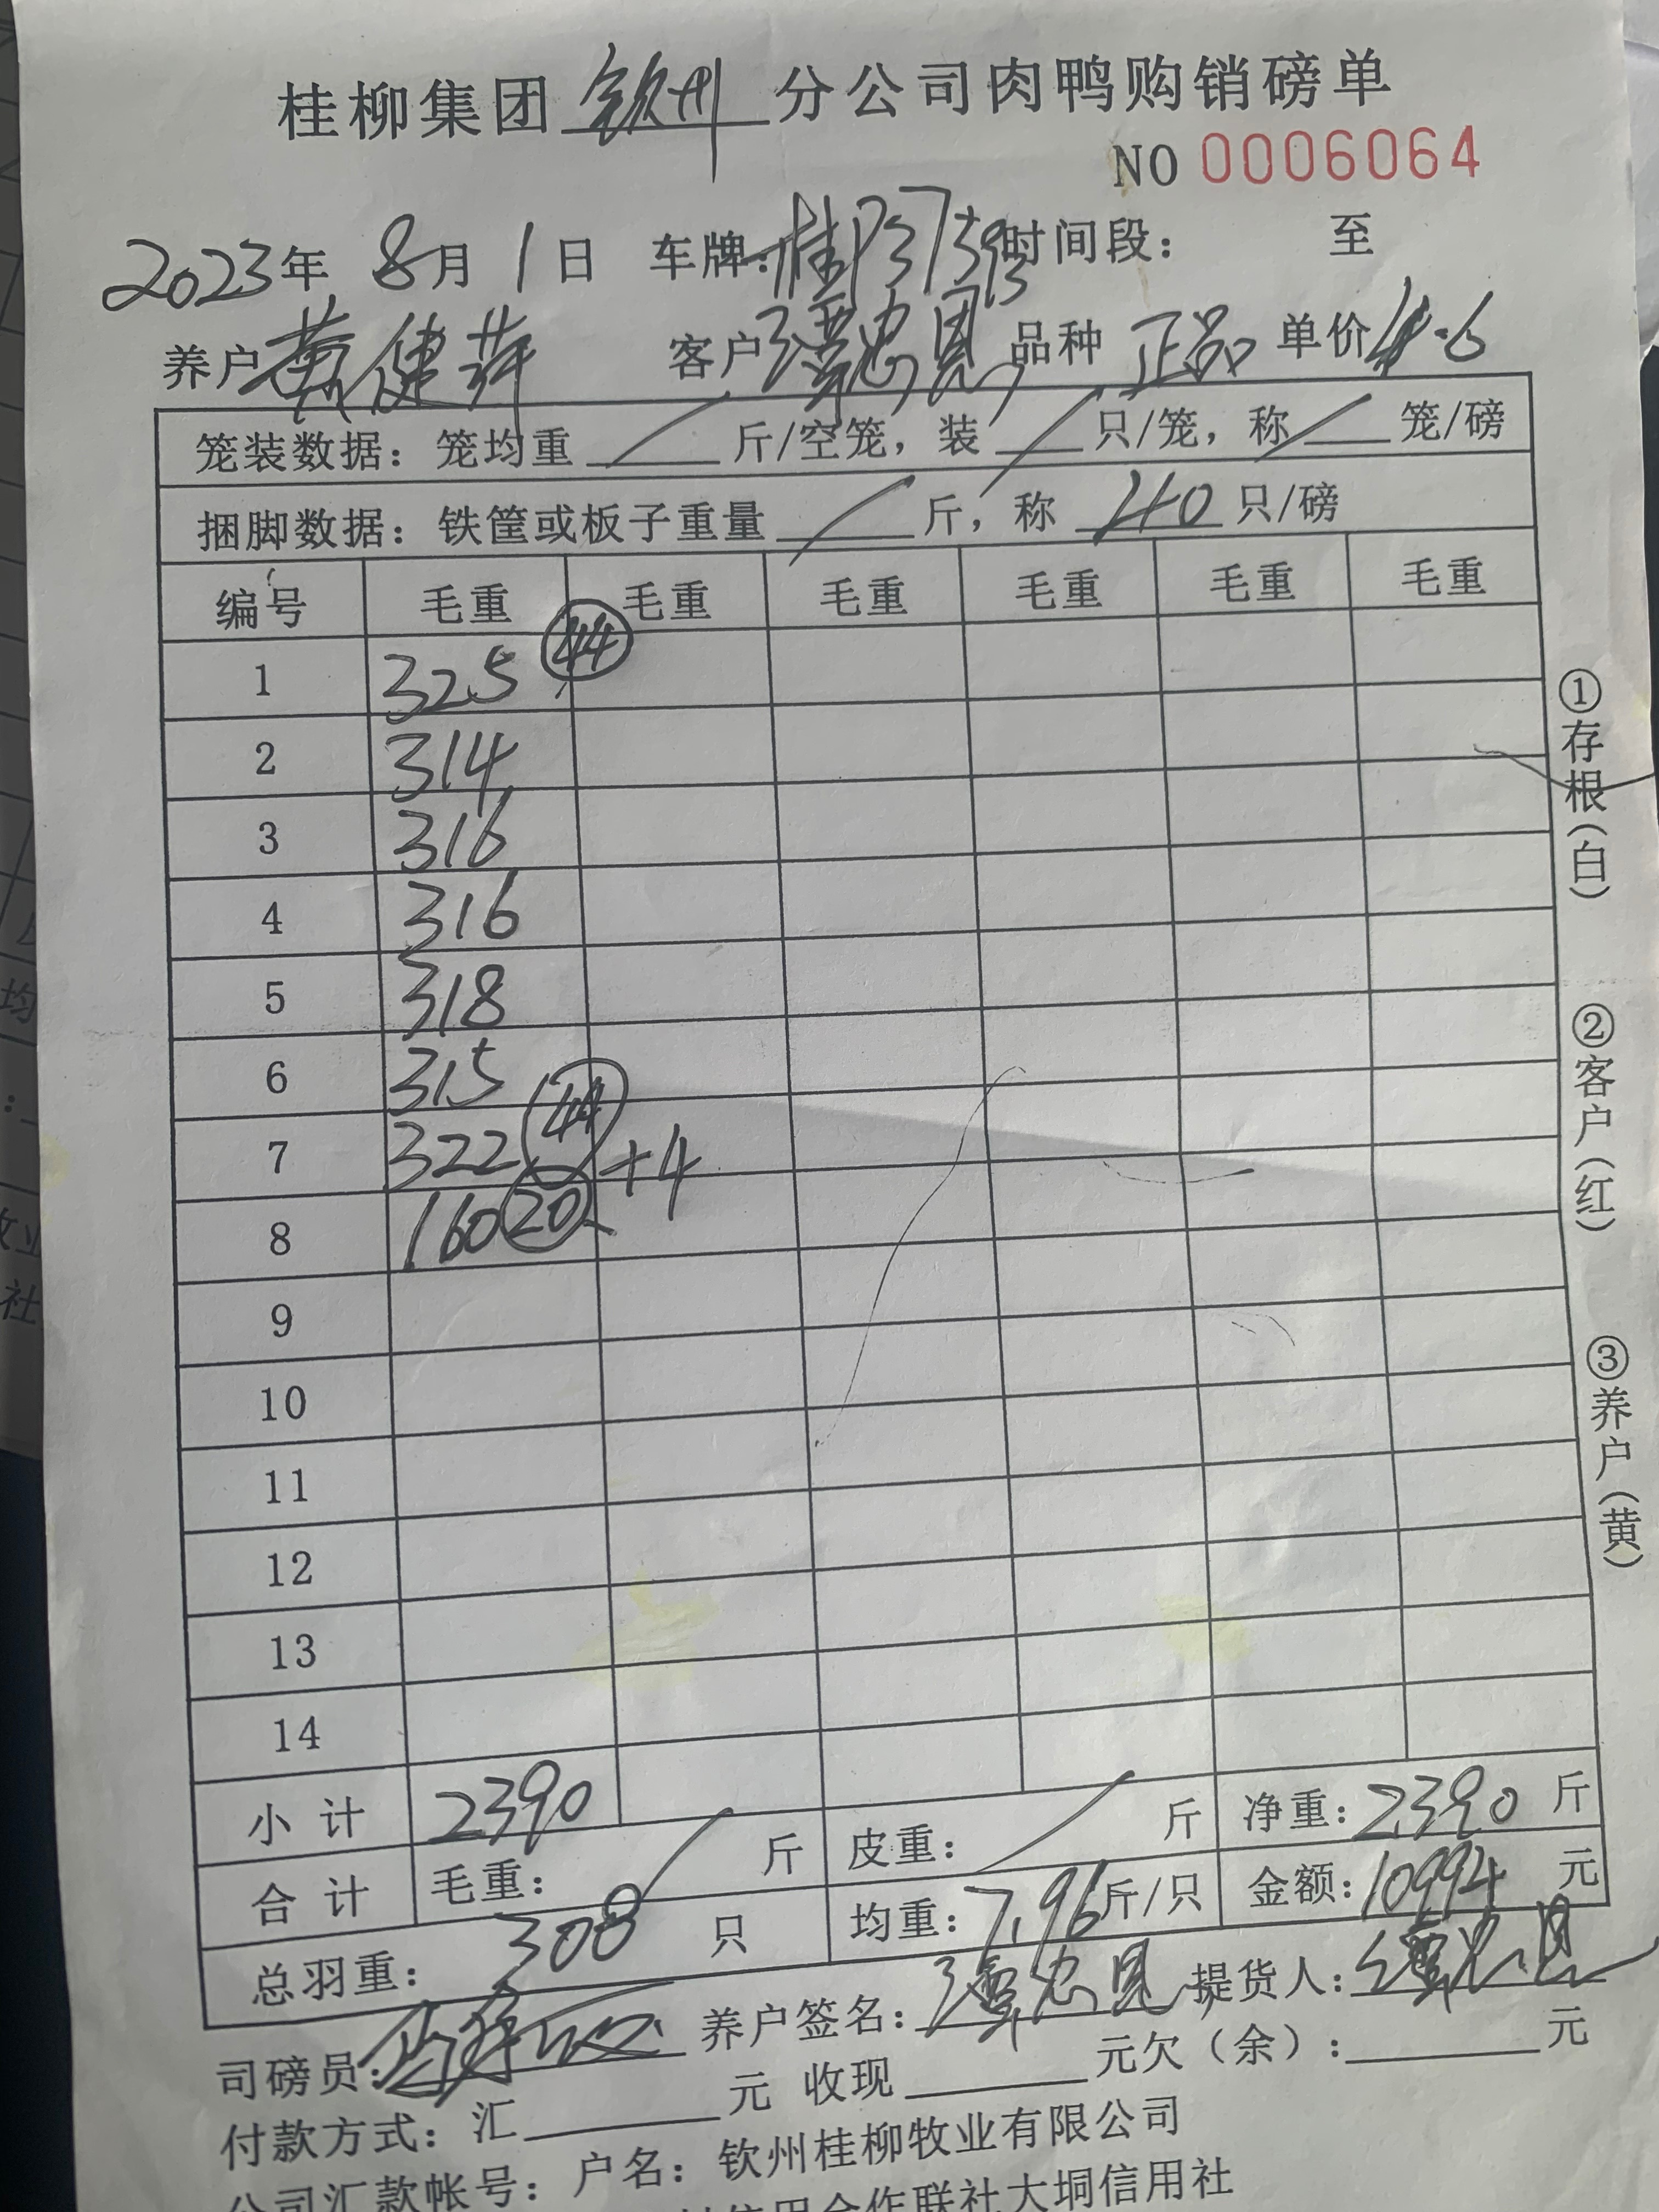 桂柳集团 钦州 分公司肉鸭购销磅单
NO 0006064
2023年 8月 1日 车牌: 时间段: 至
养户 黄健萍 客户 覃忠恩 品种 正品 单价 4.6
笼装数据: 笼均重 斤/空笼, 装 只/笼, 称 笼/磅
捆脚数据: 铁筐或板子重量 斤, 称 40 只/磅
编号 毛重 毛重 毛重 毛重 毛重 毛重
1 325 44
2 314
3 316
4 316
5 318
6 315
7 322 44 +4
8 160 20
9
10
11
12
13
14
小计 2390 净重: 2390 斤
合计 毛重: 斤 皮重: 斤 金额: 10994 元
总羽重: 308 只 均重: 7.96 斤/只
①存根(白)
②客户(红)
③养户(黄)
司磅员: 养户签名: 覃忠恩 提货人: 覃忠恩
付款方式: 汇 元 收现 元欠(余): 元
公司汇款帐号: 户名: 钦州桂柳牧业有限公司
信用合作联社大垌信用社